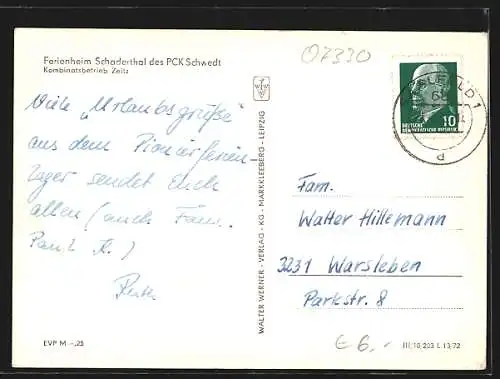 Ferienheim Schaderthal des PCK Schwedt
Kombinatsbetrieb Zeitz
07330
Viele "Urlaubsgrüße"
aus dem Pionierferien-
lager sendet Euch
allen (auch Fam.
Paul R.)
DEUTSCHE
DEMOKRATISCHE REPUBLIK
10
d
WALTER WERNER - VERLAG - KG - MARKKLEEBERG - LEIPZIG
Fam.
Walter Hillemann
3231 Warsleben
Parkstr. 8
€ 6,-
EVP M -,25
III 18 203 L 13/72